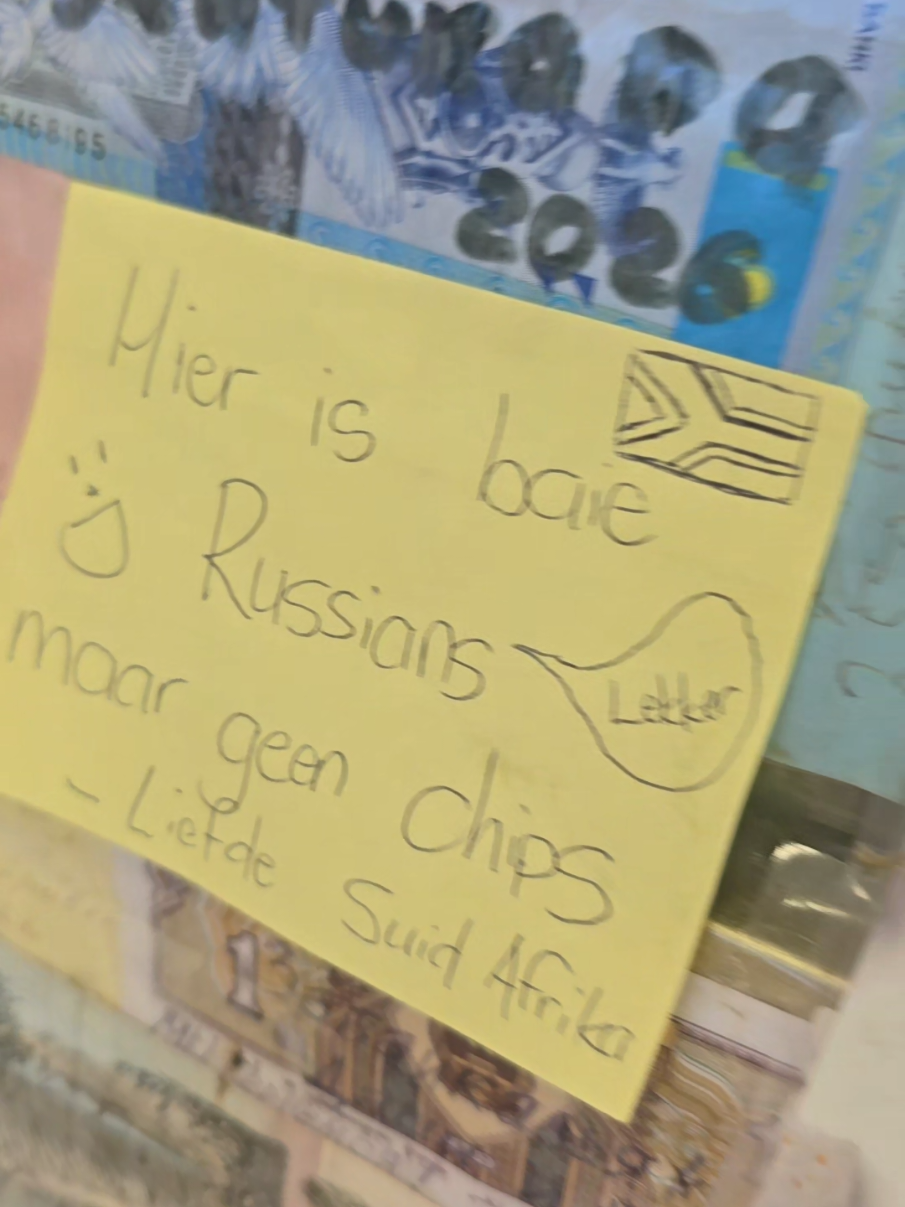 5458195
2026
Hier is baie
Russians
Lekker
maar geen Chips
- Liefde Suid Afrika